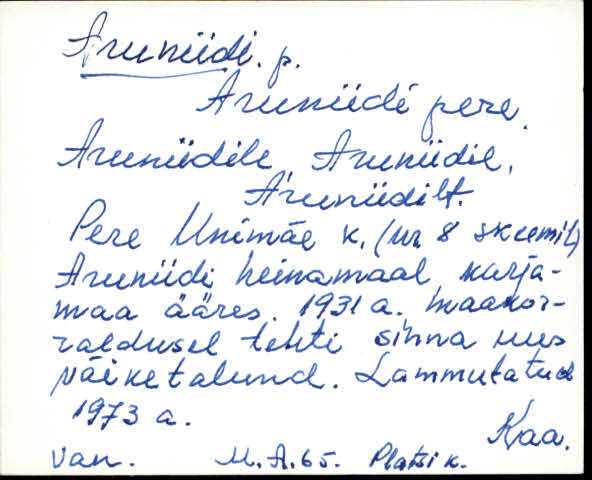 Aruniidi. p.
Aruniidi pere.
Aruniidile Aruniidil,
Aruniidilt.
Pere Unimäe k. (nr 8 skeemil)
Aruniidi heinamaal karja-
maa ääres. 1931 a. maakor-
raldusel tehti sinna uus
väiketalund. Lammutatud
1973 a.
Kaa.
Van. M.A.65. Platsi k.